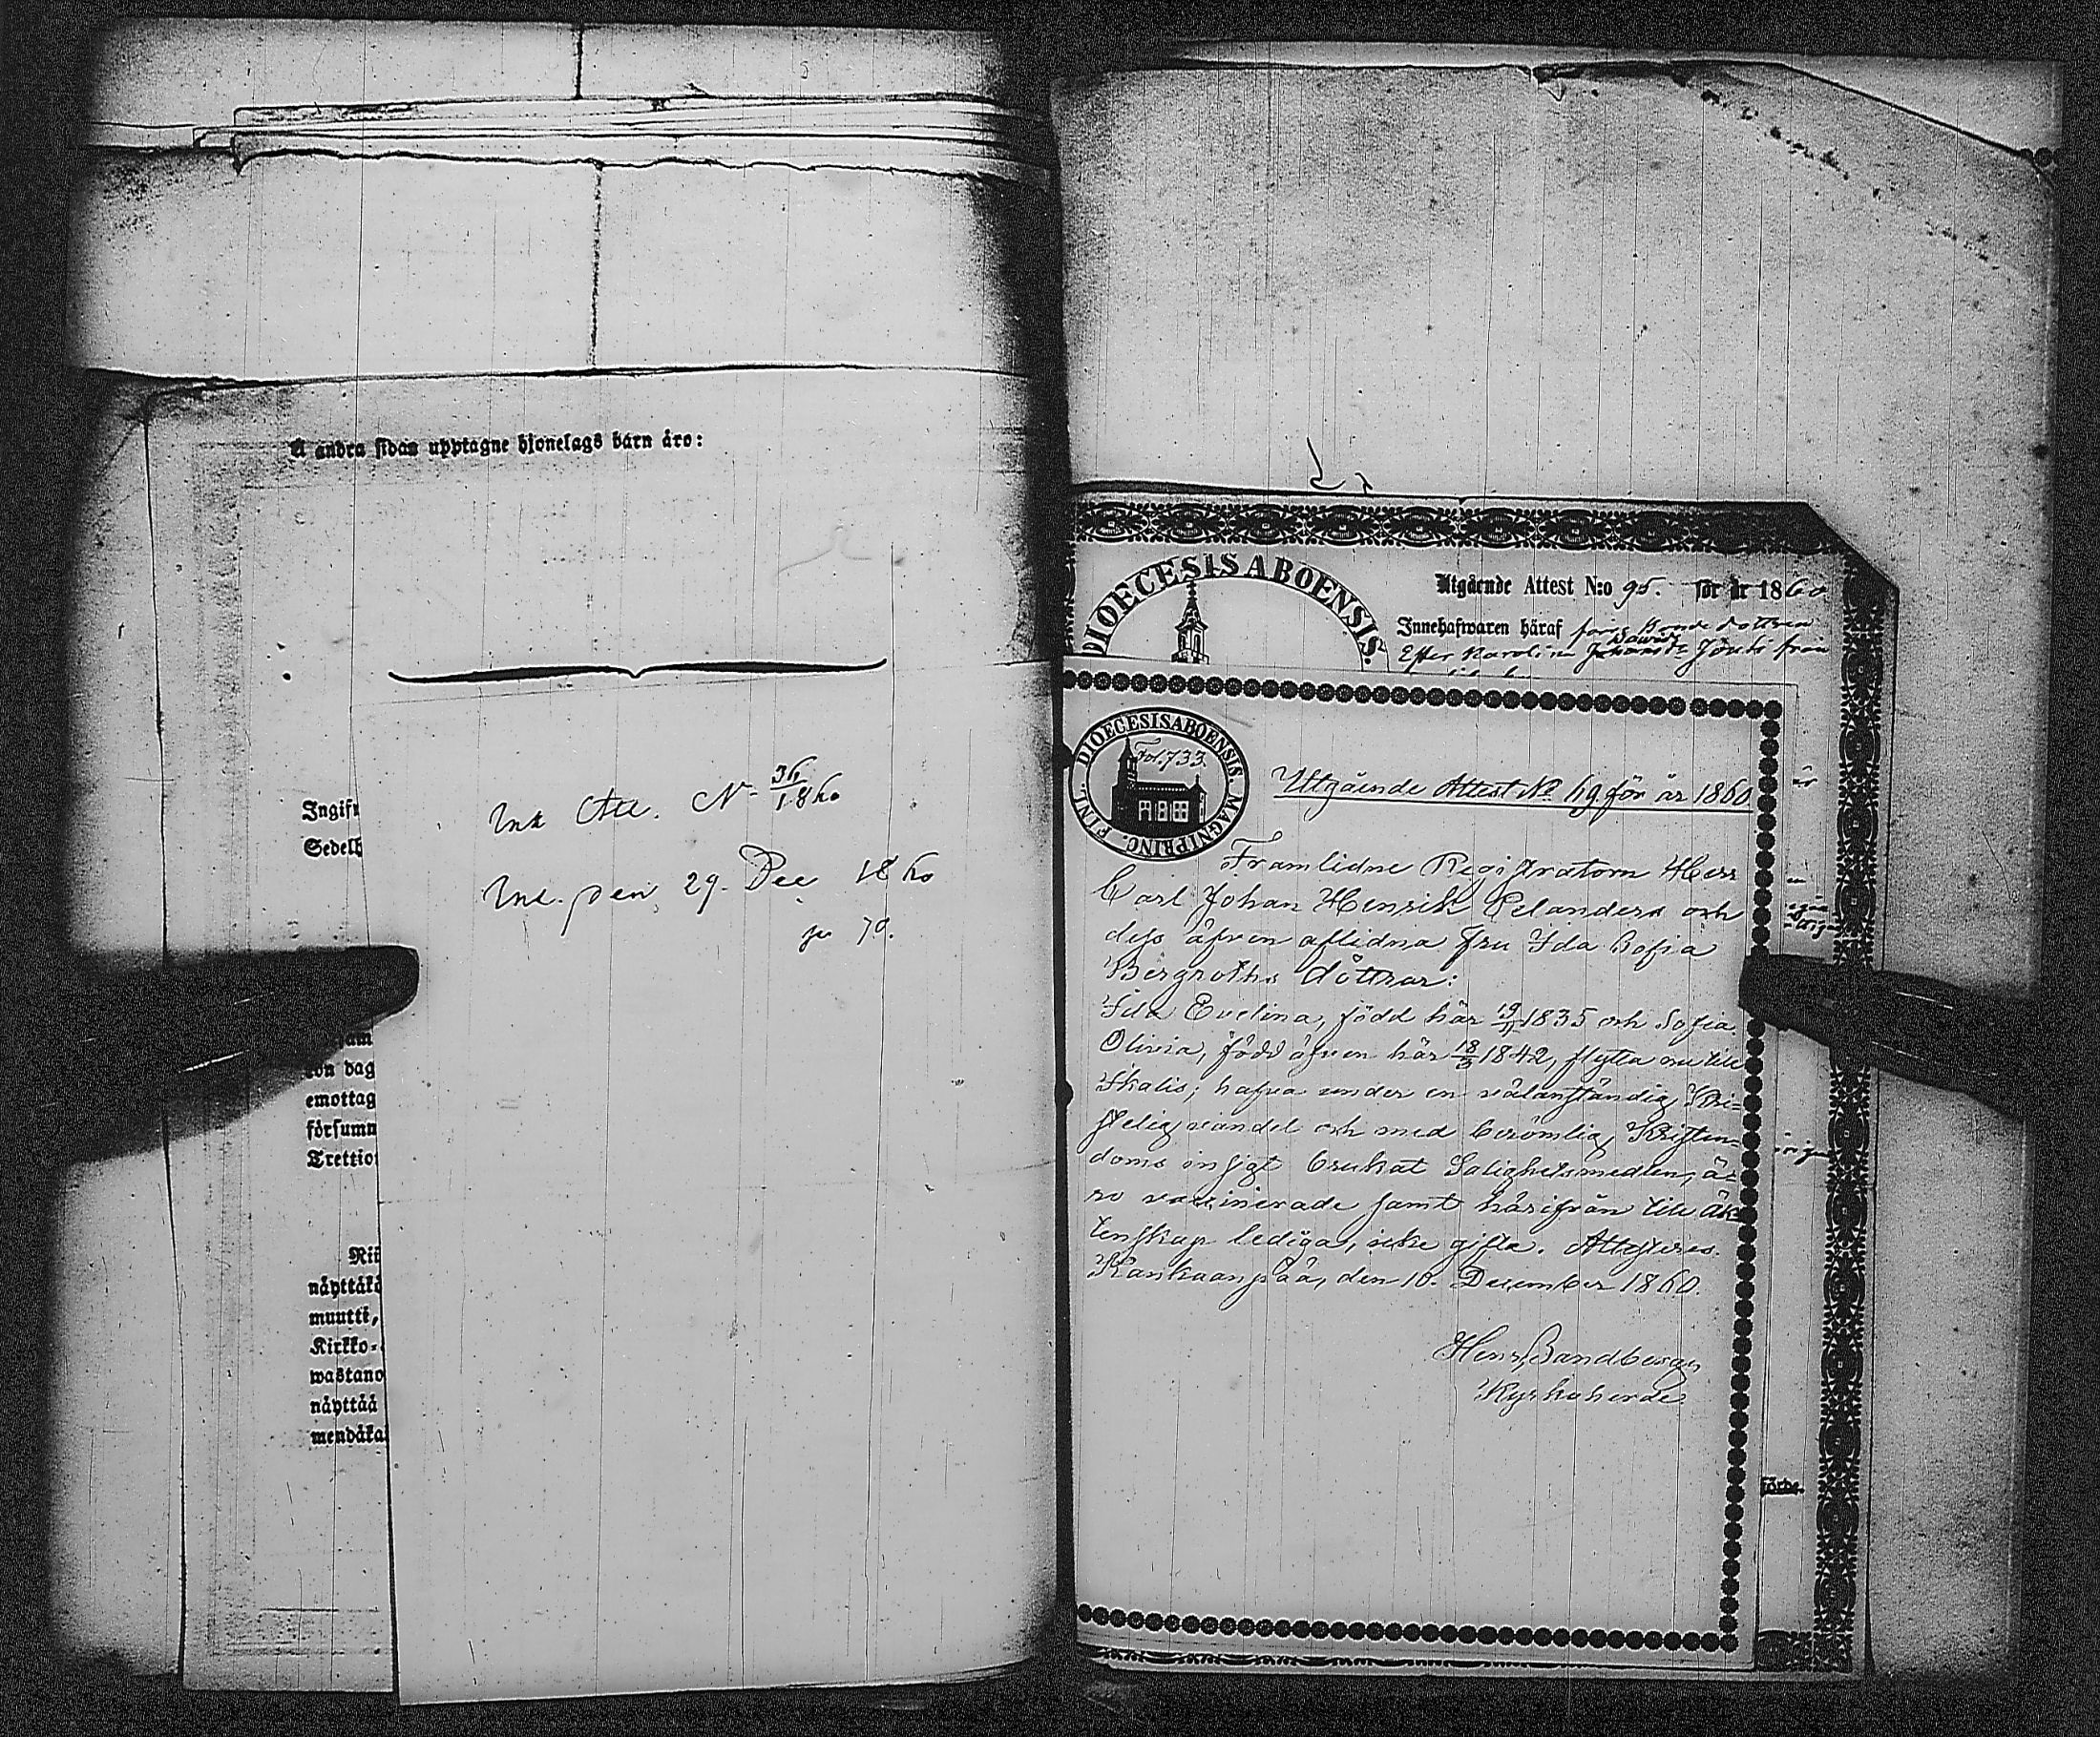 Å andra sidan upptagne hjonelags barn äro:
Ink Att. N 36/1860
Ink. den 29. Dec 1860
Ingift
Sedelb
dag
emottag
försumm
Trettio
Nii
näyttäkö
muutti,
Kirkko-
wastano
näyttää
mendäkä
DIOECESIS ABOENSIS.
Utgående Attest N:o 95. för år 1860
Innehafwaren häraf förre Bonde dottren
Ester Karolin Davids Jonti från
DIOECESIS ABOENSIS. MAGNI PRINC. FINL.
Fol. 733
Utgående Attest No 69 för år 1860
Framlidne Registratorn Herr
Carl Johan Henrik Pelanders och
dess äfven aflidna fru Ida Sofia
Bergroths döttrar:
Ida Evelina, född här 19/11 1835 och Sofia
Olivia, född äfven här 18/3 1842, flytta nu till
Ikalis; hafva under en välanständig Kri-
stelig vandel och med berömlig Kristen-
doms insigt brukat Salighetsmedlen, ä-
ro vaccinerade samt härifrån till äk-
tenskap lediga, icke gifta. Attesteras.
Kankaanpää, den 10. December 1860.
Henr. Sandberg,
Kyrkoherde
förds.